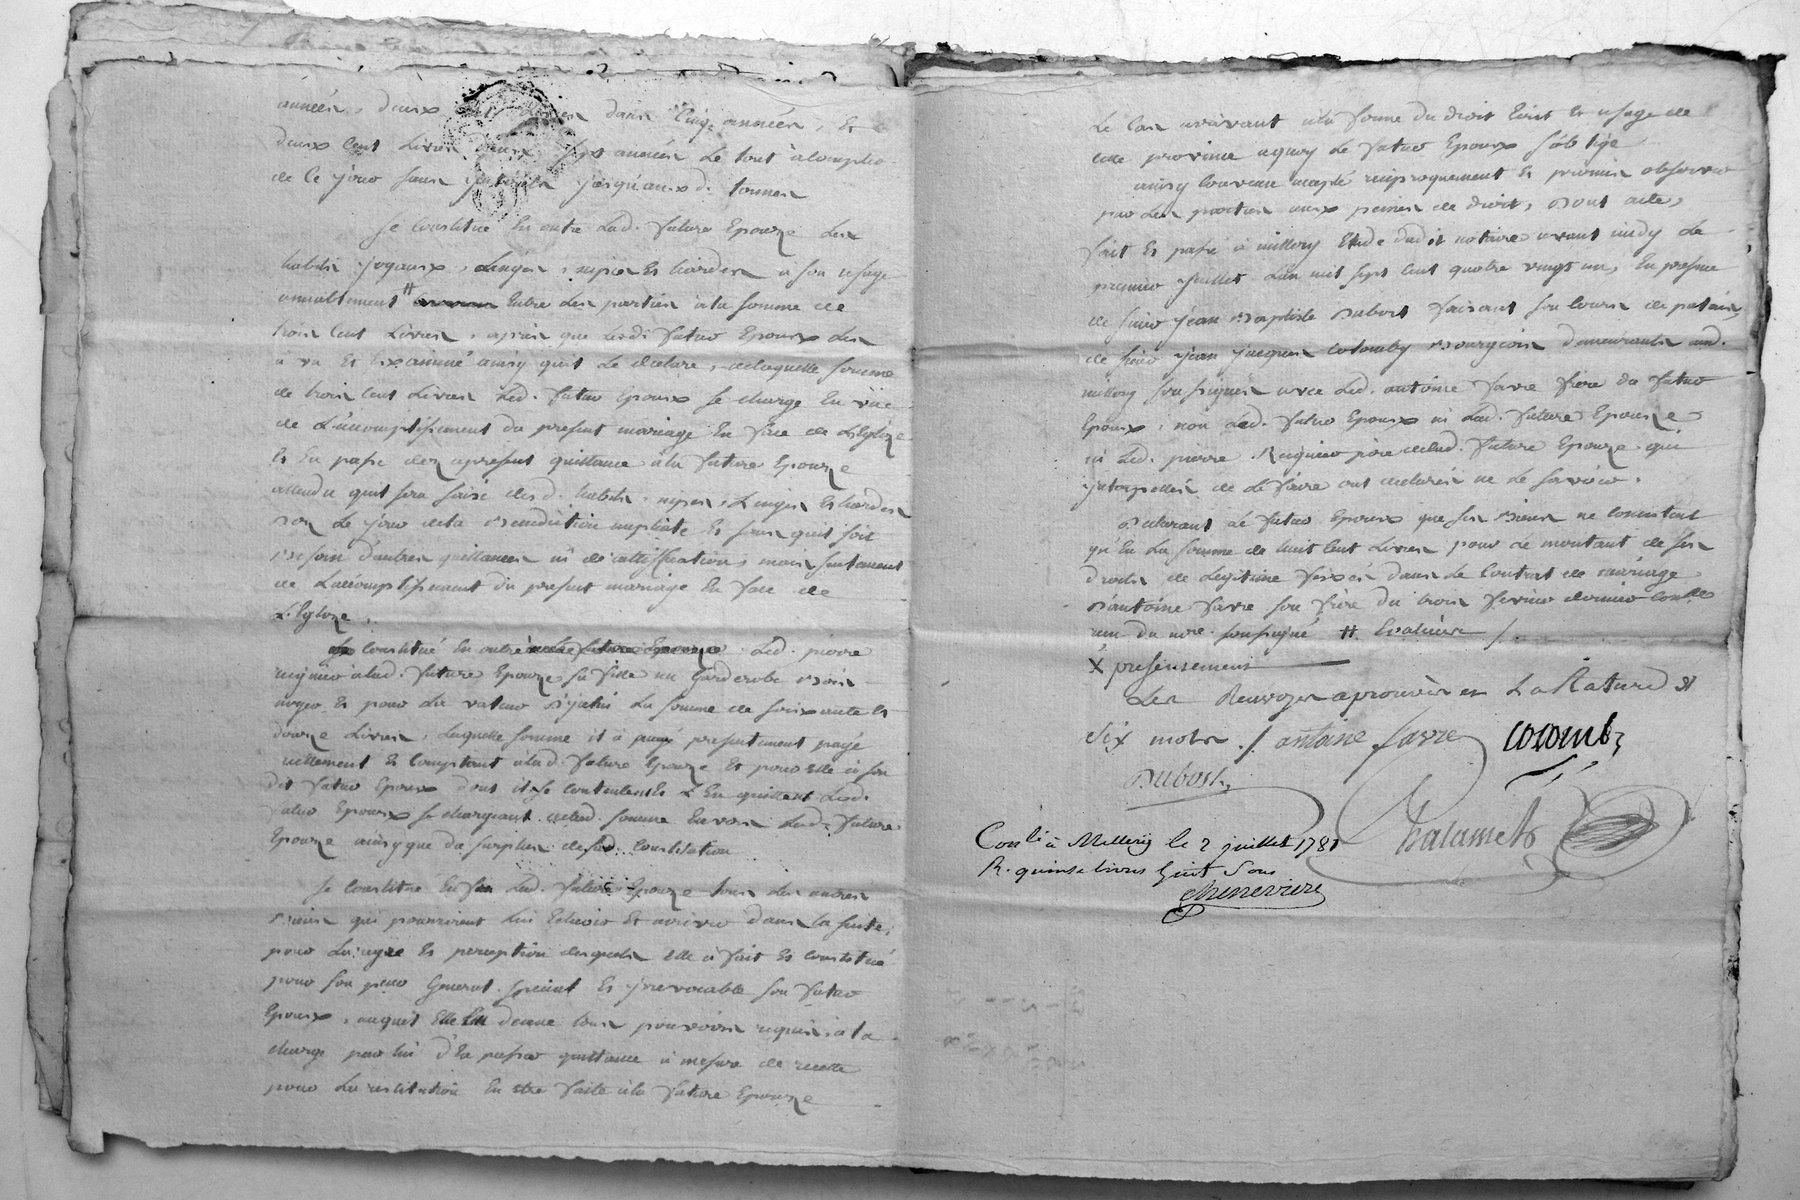 années, deux cent livres dans cinq années, Et
deux Cent Livres dans sept années Le tout à compter
de Ce jour sans jnterets jusqu'auxd. termes
Se Constitue En outre Lad. future Epouze Les
habits joyaux, Linges, nipes Et hardes a son usage
amiablement # Entre Les parties à la somme de
trois Cent Livres, après que Ledt futur Epoux Les
à vû Et Examiné ainsy quil Le declare, delaquelle somme
de trois Cent Livres Led. futur Epoux Se charge En vüe
de L'accomplissement du present mariage En face de L'Eglize
Et En passe dez apresent quittance à la future Epouze
attendu quil sera saisi desd. habits, nipes, Linges Et hardes
Dez Le jour dela Benediction nuptiale Et sans quil soit
Besoin d'autres quittances ni de rattiffication, mais seulement
de L'accomplissement du present mariage En face de
L'Eglize.
Constitué En outre à la future Epouze Led. pierre
à lad. future Epouze sa fille un Garderobe Bois
noyer Et pour La valeur D'jcelui La somme de soixante Et
douze Livres, Laquelle somme il à presentement payé
reellement Et Comptant à lad. future Epouze Et pour Elle à son
dit futur Epoux dont ils se contentent Et L'En quittent Led.
futur Epoux se chargeant delad. somme Envers Lad. future
Epouze ainsy que du surplus de sad. Constitution
Se Constitue Enfin Lad. future Epouze tous Les autres
Biens qui pourroient Lui Echeoir Et arriver dans la suite,
pour La regie Et perception desquels Elle à fait Et Constitué
pour son procur General special Et jrrevocable son futur
Epoux, auquel Elle En donne tous pouvoirs requis, à la
charge par lui d'En passer quittance à mesure de recette
pour La restitution En etre faite à la future Epouze
Le Cas arrivant à la forme du droit Ecrit Et usage de
cette province a quoy Le futur Epoux s'oblige
ainsy Convenu accepté reciproquement Et promis observer
par Les parties aux peines de droit, Dont acte,
fait Et passé à millery Etude dudit notaire avant midy Le
premier juillet L'an mil sept Cent quatre vingt un, En presence
de sieur jean Baptiste Dubost faisant son Cours de
de sieur jean jacques Colomby Bourgeois demeurants aud.
millery soussignés avec Led. antoine favre frere du futur
Epoux, non Led. futur Epoux ni Lad. future Epouze
ni Led. pierre pere delad. future Epouze qui
jnterpellés de Le faire ont declarés ne Le savoir.
Declarant Le futur Epoux que ses Biens ne Consistent
qu'En La somme de huit Cent Livres pour Le montant de ses
droits de Legitime fixés dans Le Contrat de mariage
D'antoine favre son frere du trois fevrier dernier
reçu du nore soussigné # Evalués /.
X presentement
Les Renvoyes aprouvés Et La Rature de
Six mots ./. antoine favre Colomby
Dubost
Thalamets
Conlé à Millery le 2 juillet 1781
R. quinze livres huit Sous
Chenevière